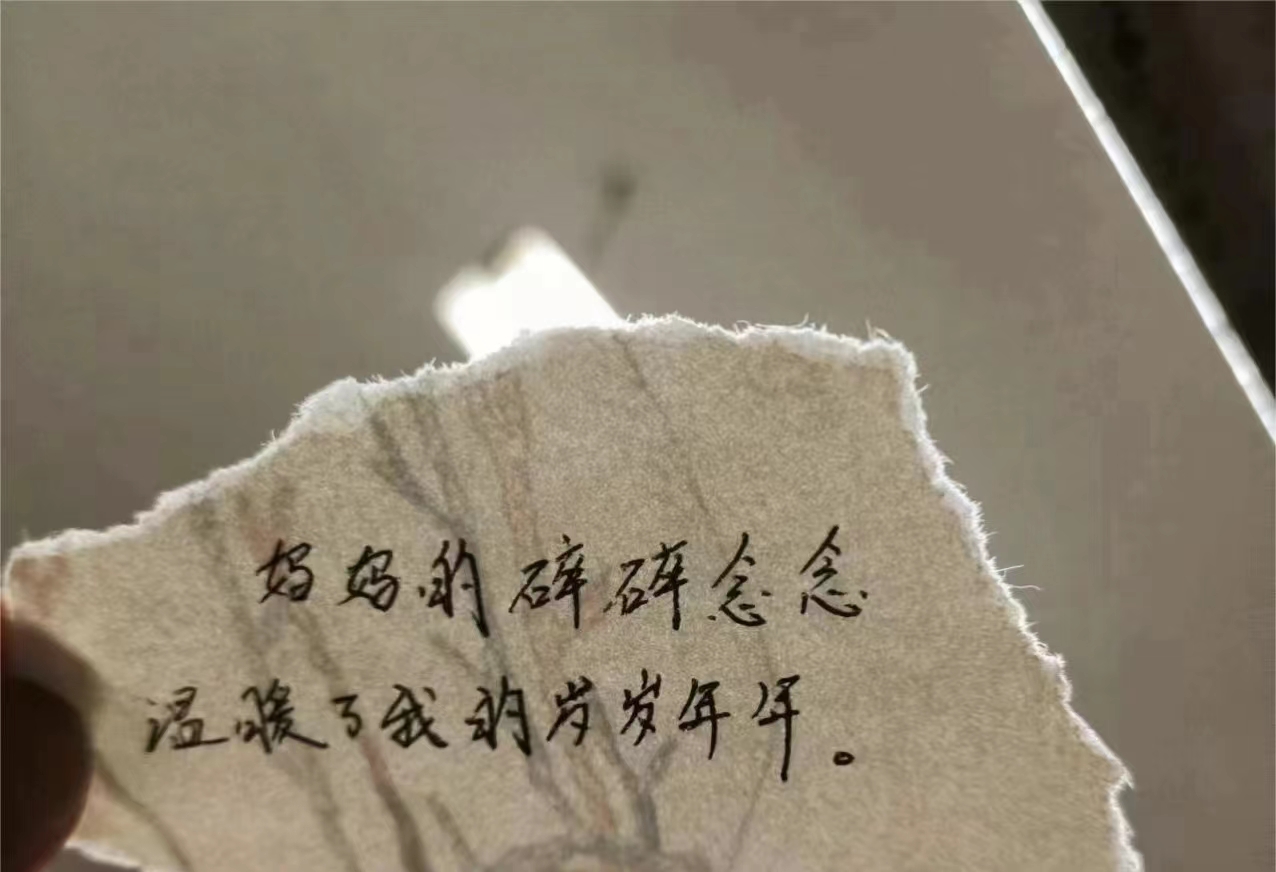 妈妈的碎碎念念
温暖了我的岁岁年年。